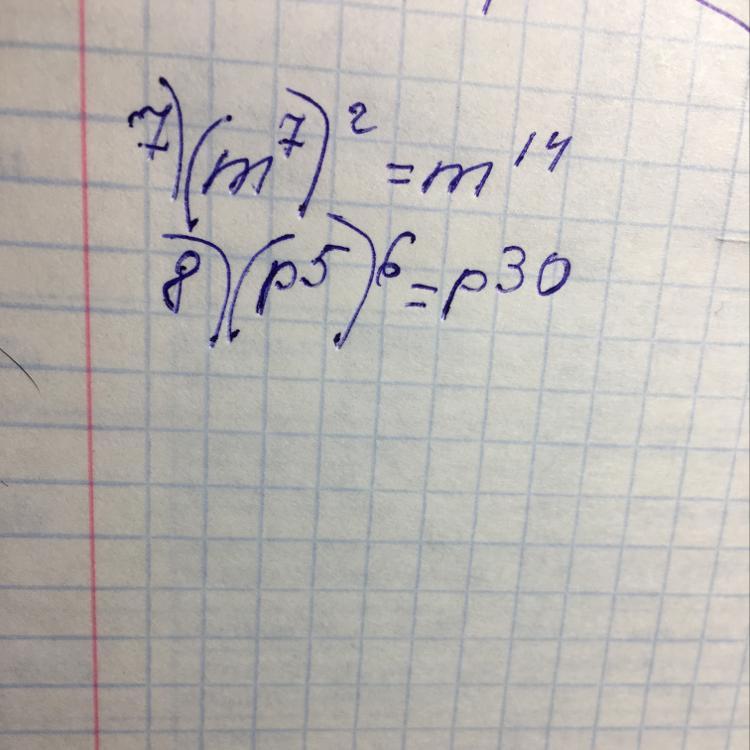 7) (m⁷)² = m¹⁴
8) (p5)6 = p30